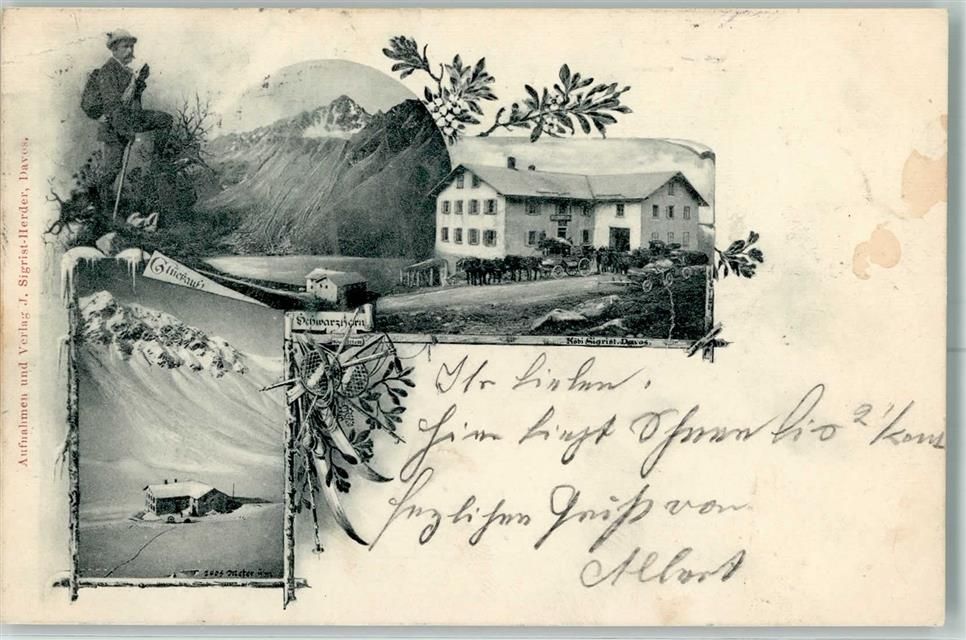 Aufnahmen und Verlag J. Sigrist-Herder, Davos.
Glückauf!
Schwarzhorn
Köbi Sigrist. Davos.
2405 Meter ü/m
Ihr Lieben.
Hier liegt Schnee bis 2'
Herzlichen Gruß von
Albert